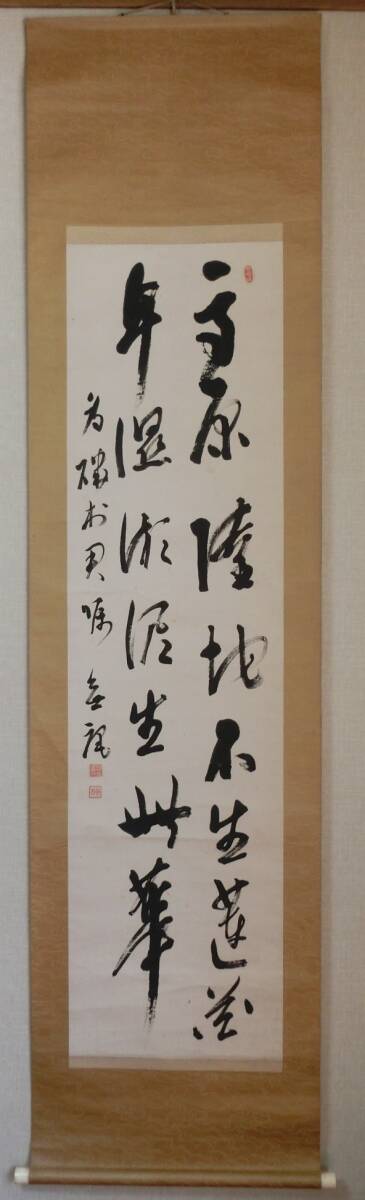 高原陸地不生蓮花
卑湿淤泥生此華
為磯村君嘱